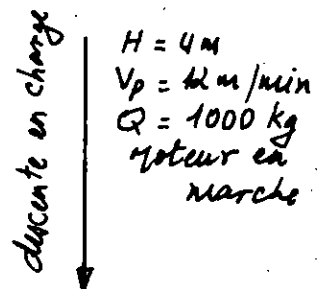 descente en charge
H = 4 m
Vp = 12 m/min
Q = 1000 kg
moteur en
marche